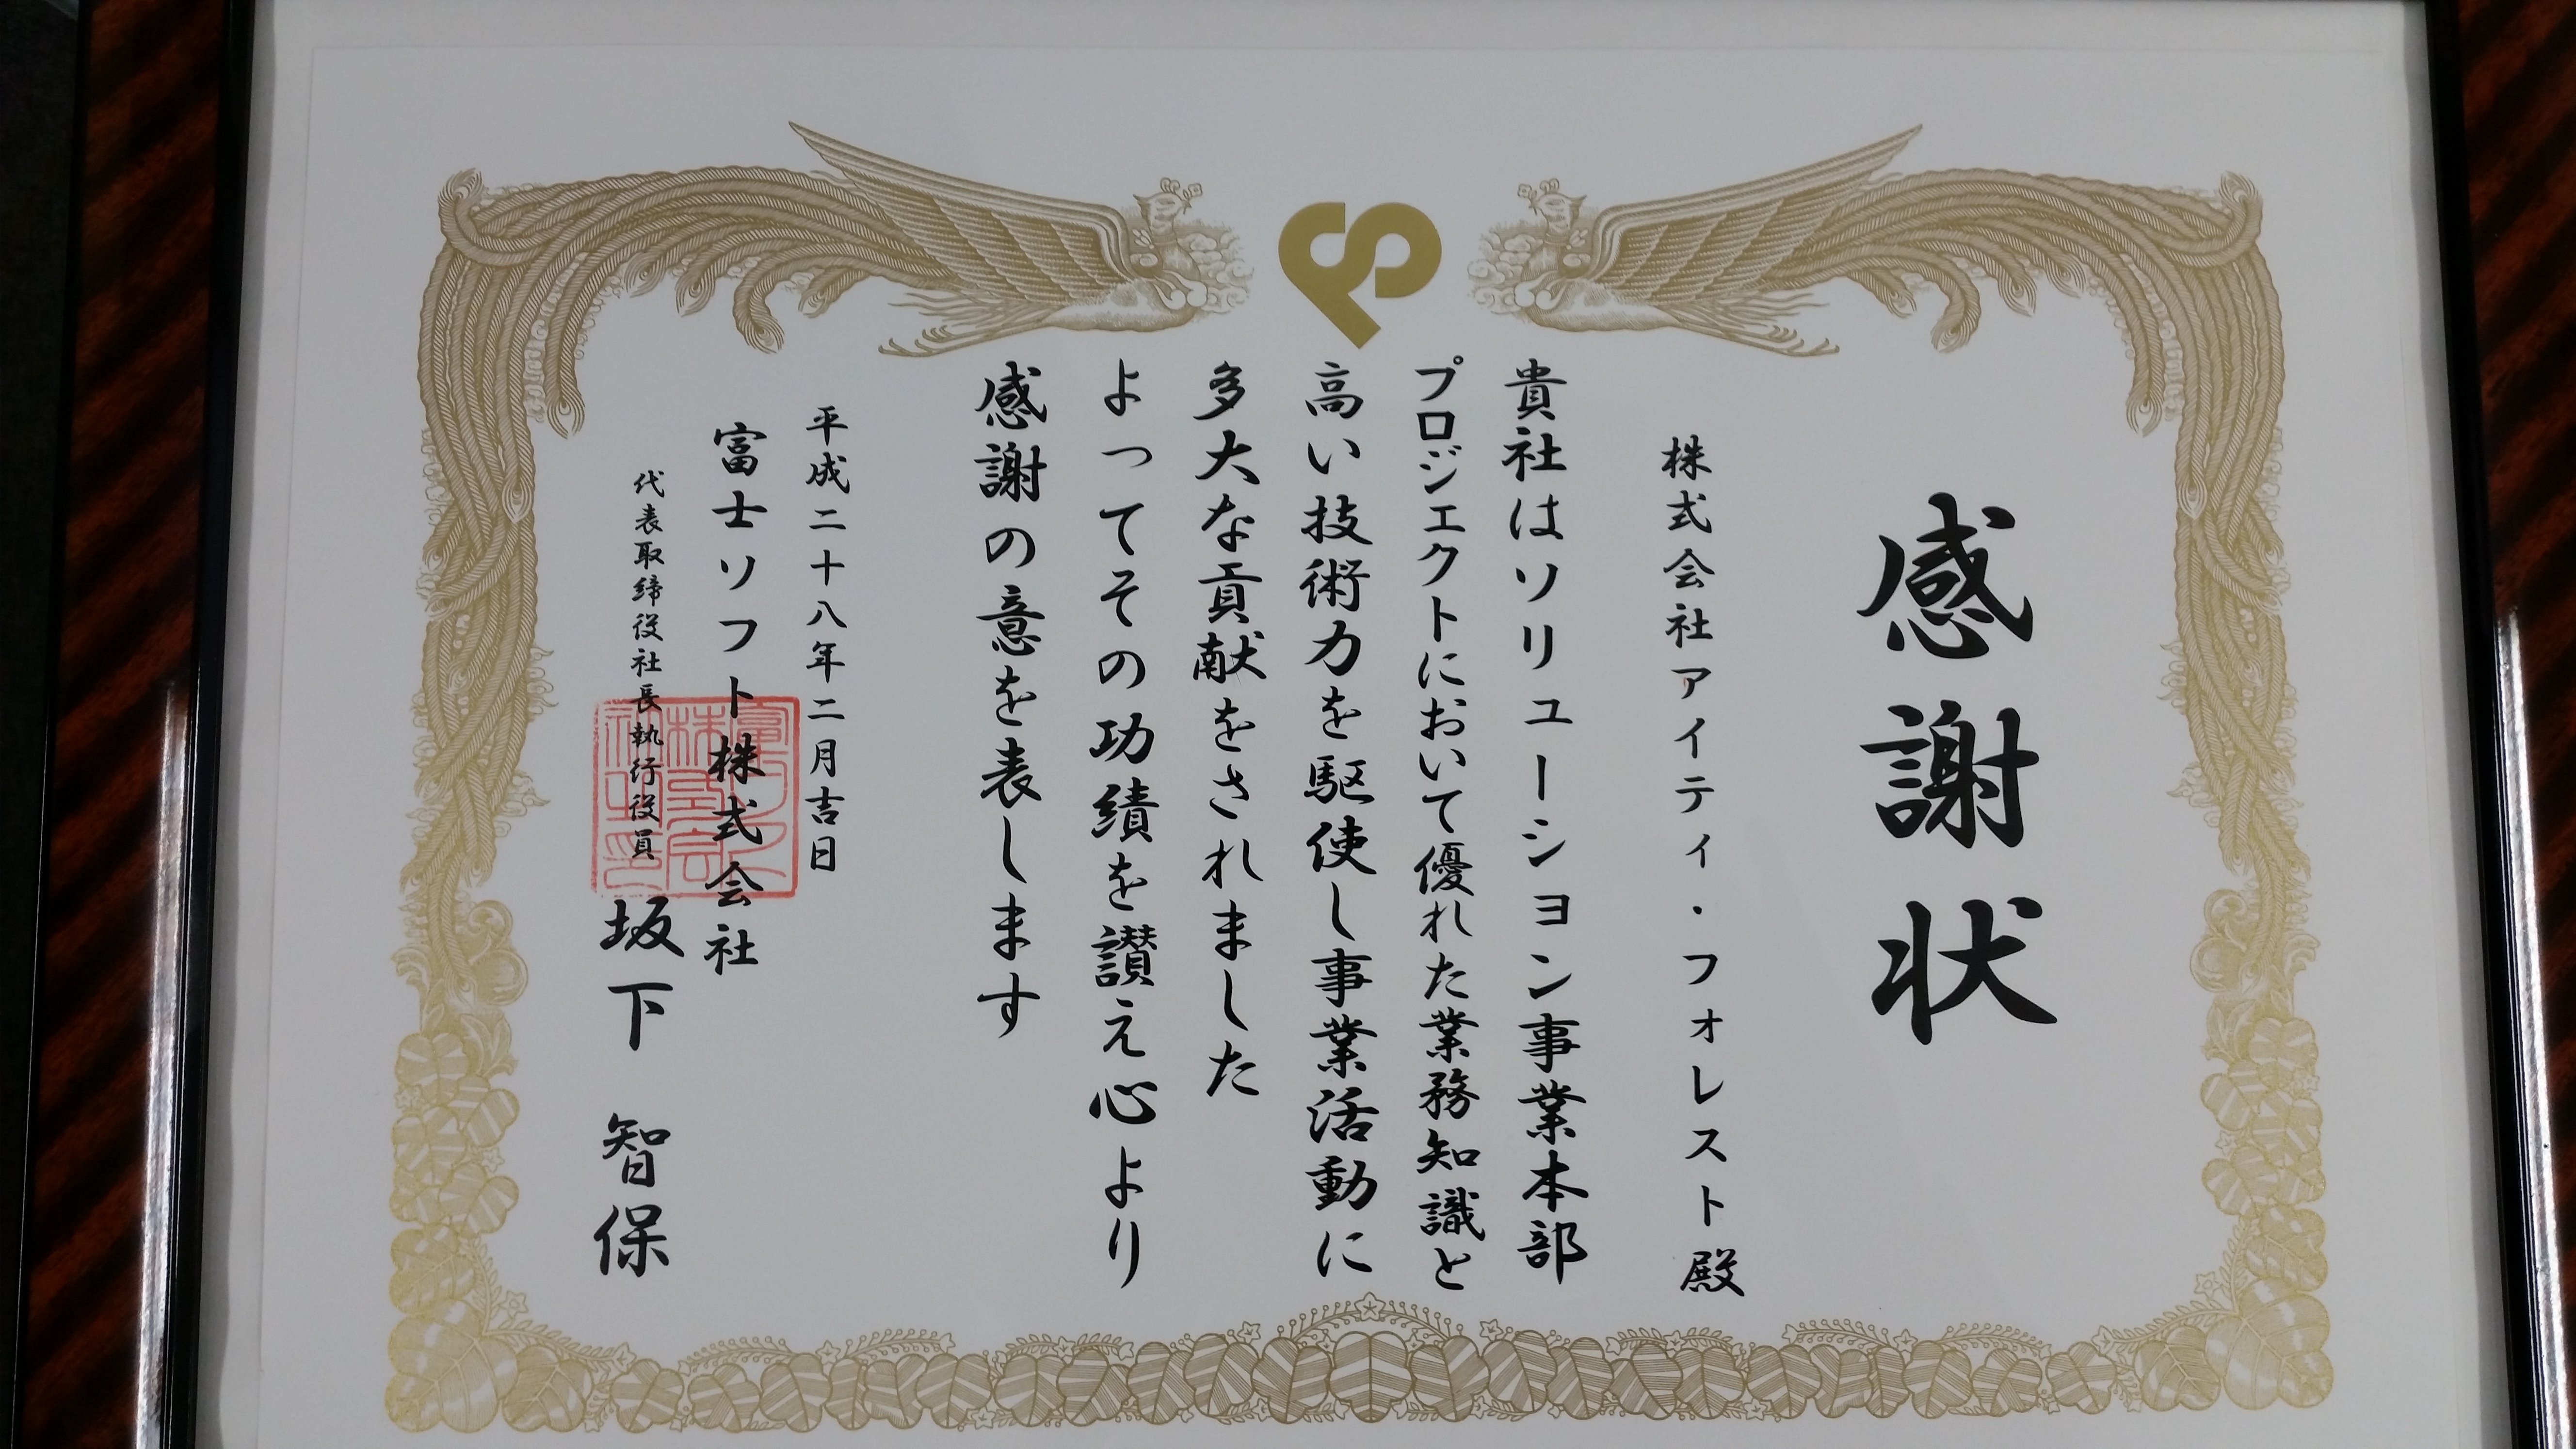 感謝状
株式会社アイティ・フォレスト殿
貴社はソリューション事業本部
プロジェクトにおいて優れた業務知識と
高い技術力を駆使し事業活動に
多大な貢献をされました
よってその功績を讃え心より
感謝の意を表します
平成二十八年二月吉日
富士ソフト株式会社
代表取締役社長執行役員 坂下 智保